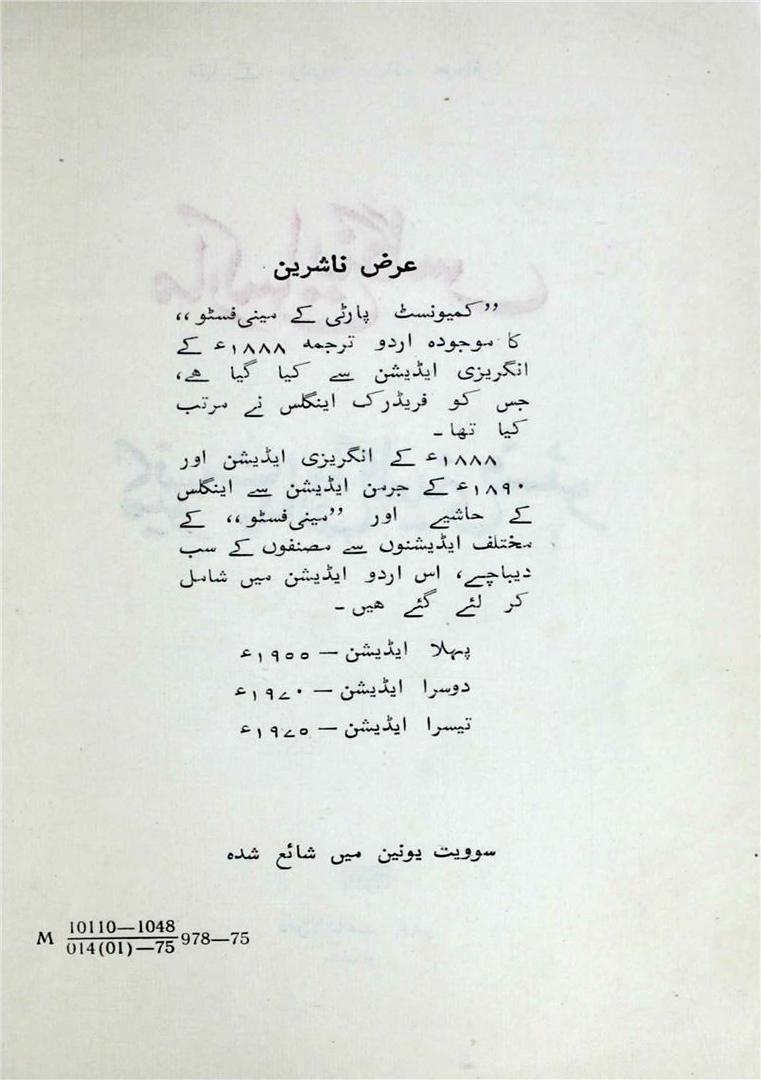 عرض ناشرین
’’کمیونسٹ پارٹی کے مینی فسٹو،،
کا موجودہ اردو ترجمہ ۱۸۸۸ء کے
انگریزی ایڈیشن سے کیا گیا ہے،
جس کو فریڈرک اینگلس نے مرتب
کیا تھا ۔
۱۸۸۸ء کے انگریزی ایڈیشن اور
۱۸۹۰ء کے جرمن ایڈیشن سے اینگلس
کے حاشیے اور ’’مینی فسٹو،، کے
مختلف ایڈیشنوں سے مصنفوں کے سب
دیباچے، اس اردو ایڈیشن میں شامل
کر لئے گئے ہیں ۔
پہلا ایڈیشن — ۱۹۵۵ء
دوسرا ایڈیشن — ۱۹۷۰ء
تیسرا ایڈیشن — ۱۹۷۵ء
سوویت یونین میں شائع شدہ
M 10110—1048 978—75
014(01)—75